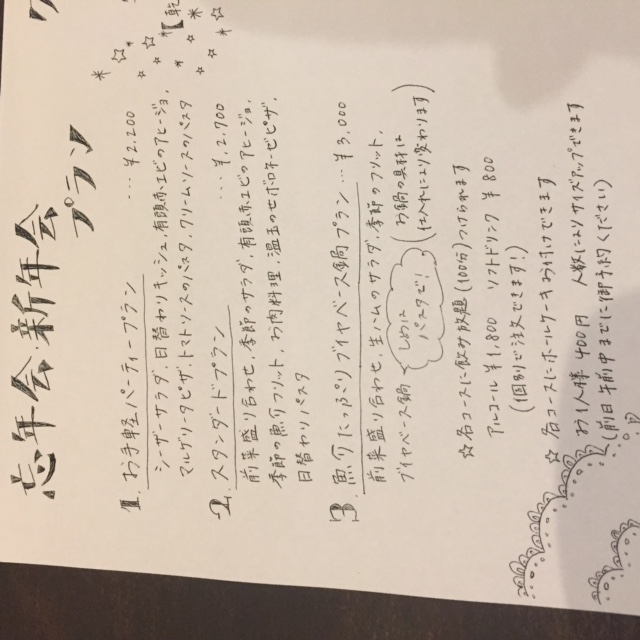 忘年会 新年会
プラン
1. お手軽パーティープラン … ¥2,200
シーザーサラダ、日替わりキッシュ、有頭赤エビのアヒージョ、
マルゲリータピザ、トマトソースのパスタ、クリームソースのパスタ
2. スタンダードプラン … ¥2,700
前菜盛り合わせ、季節のサラダ、有頭赤エビのアヒージョ、
季節の魚介フリット、お肉料理、温玉のせボロネーゼピザ、
日替わりパスタ
3. 魚介たっぷりブイヤベース鍋プラン … ¥3,000
前菜盛り合わせ、生ハムのサラダ、季節のフリット、
ブイヤベース鍋
しめは
パスタで!
お鍋の具材は
仕入れにより変わります
☆各コースに飲み放題(100分)つけられます
アルコール ¥1,800 ソフトドリンク ¥800
(個別ご注文できます!)
☆ 各コースにホールケーキお付けできます
お1人様 400円 人数によりサイズアップできます
(前日午前中までに御予約ください)